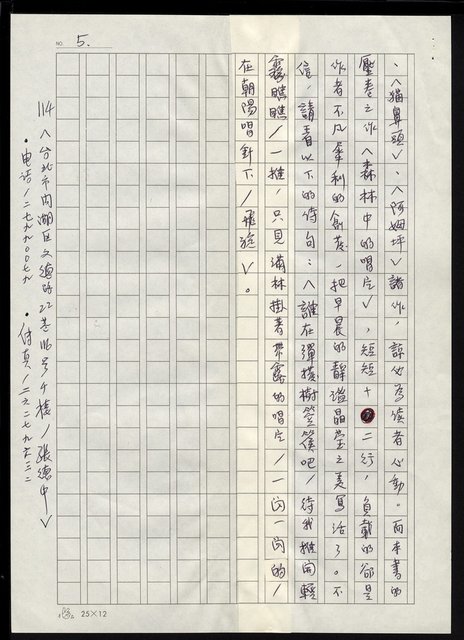 NO. 5.
、〈貓鼻頭〉、〈阿姆坪〉諸作，諒也為讀者心動。而本書的
壓卷之作〈森林中的唱片〉，短短十二行，負載的卻是
作者不凡犀利的創意，把早晨的靜謐晶瑩之美寫活了。不
信，請看以下的詩句：〈誰在彈撥樹箜篌吧／待我推開輕
霧瞧瞧／一推，只見滿林掛著帶露的唱片／一閃一閃的／
在朝陽唱針下／飛旋〉。
114〈台北市內湖區文德路22巷 號 樓／張德中〉
•電話／二七九九00七九 •傳真／二六二七九六三二
25×12